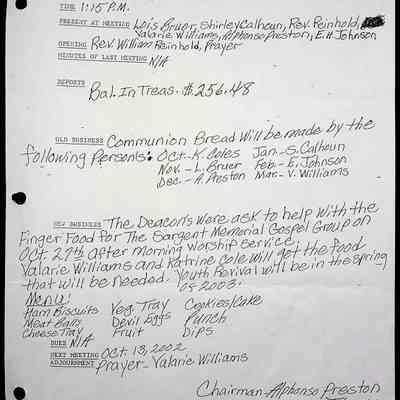 TIME 1:15 P.M.
PRESENT AT MEETING Lois Bruer, Shirley Calhoun, Rev. Reinhold,
Valarie Williams, Alphonso Preston, E.H. Johnson
OPENING Rev. William Reinhold, Prayer
MINUTES OF LAST MEETING N/A
REPORTS
Bal. In Treas. $256.48
OLD BUSINESS Communion Bread Will be made by the
following Persons: Oct.-K. Coles Jan.-S. Calhoun
Nov. - L. Bruer Feb-E. Johnson
Dec-A. Preston Mar.-V. Williams
NEW BUSINESS The Deacon's were ask to help With the
Finger Food for The Sargent Memorial Gospel Group on
Oct. 27th after morning Worship Service.
Valarie Williams and Katrine Cole will get the food
that will be needed. Youth Revival will be in the spring
of 2003.
Menu:
Ham Biscuits Veg. Tray Cookies/Cake
Meat Balls Devil Eggs Punch
Cheese Tray Fruit Dips
DUES N/A
NEXT MEETING Oct 13, 2002
ADJOURNMENT Prayer-Valarie Williams
Chairman-Alphonso Preston